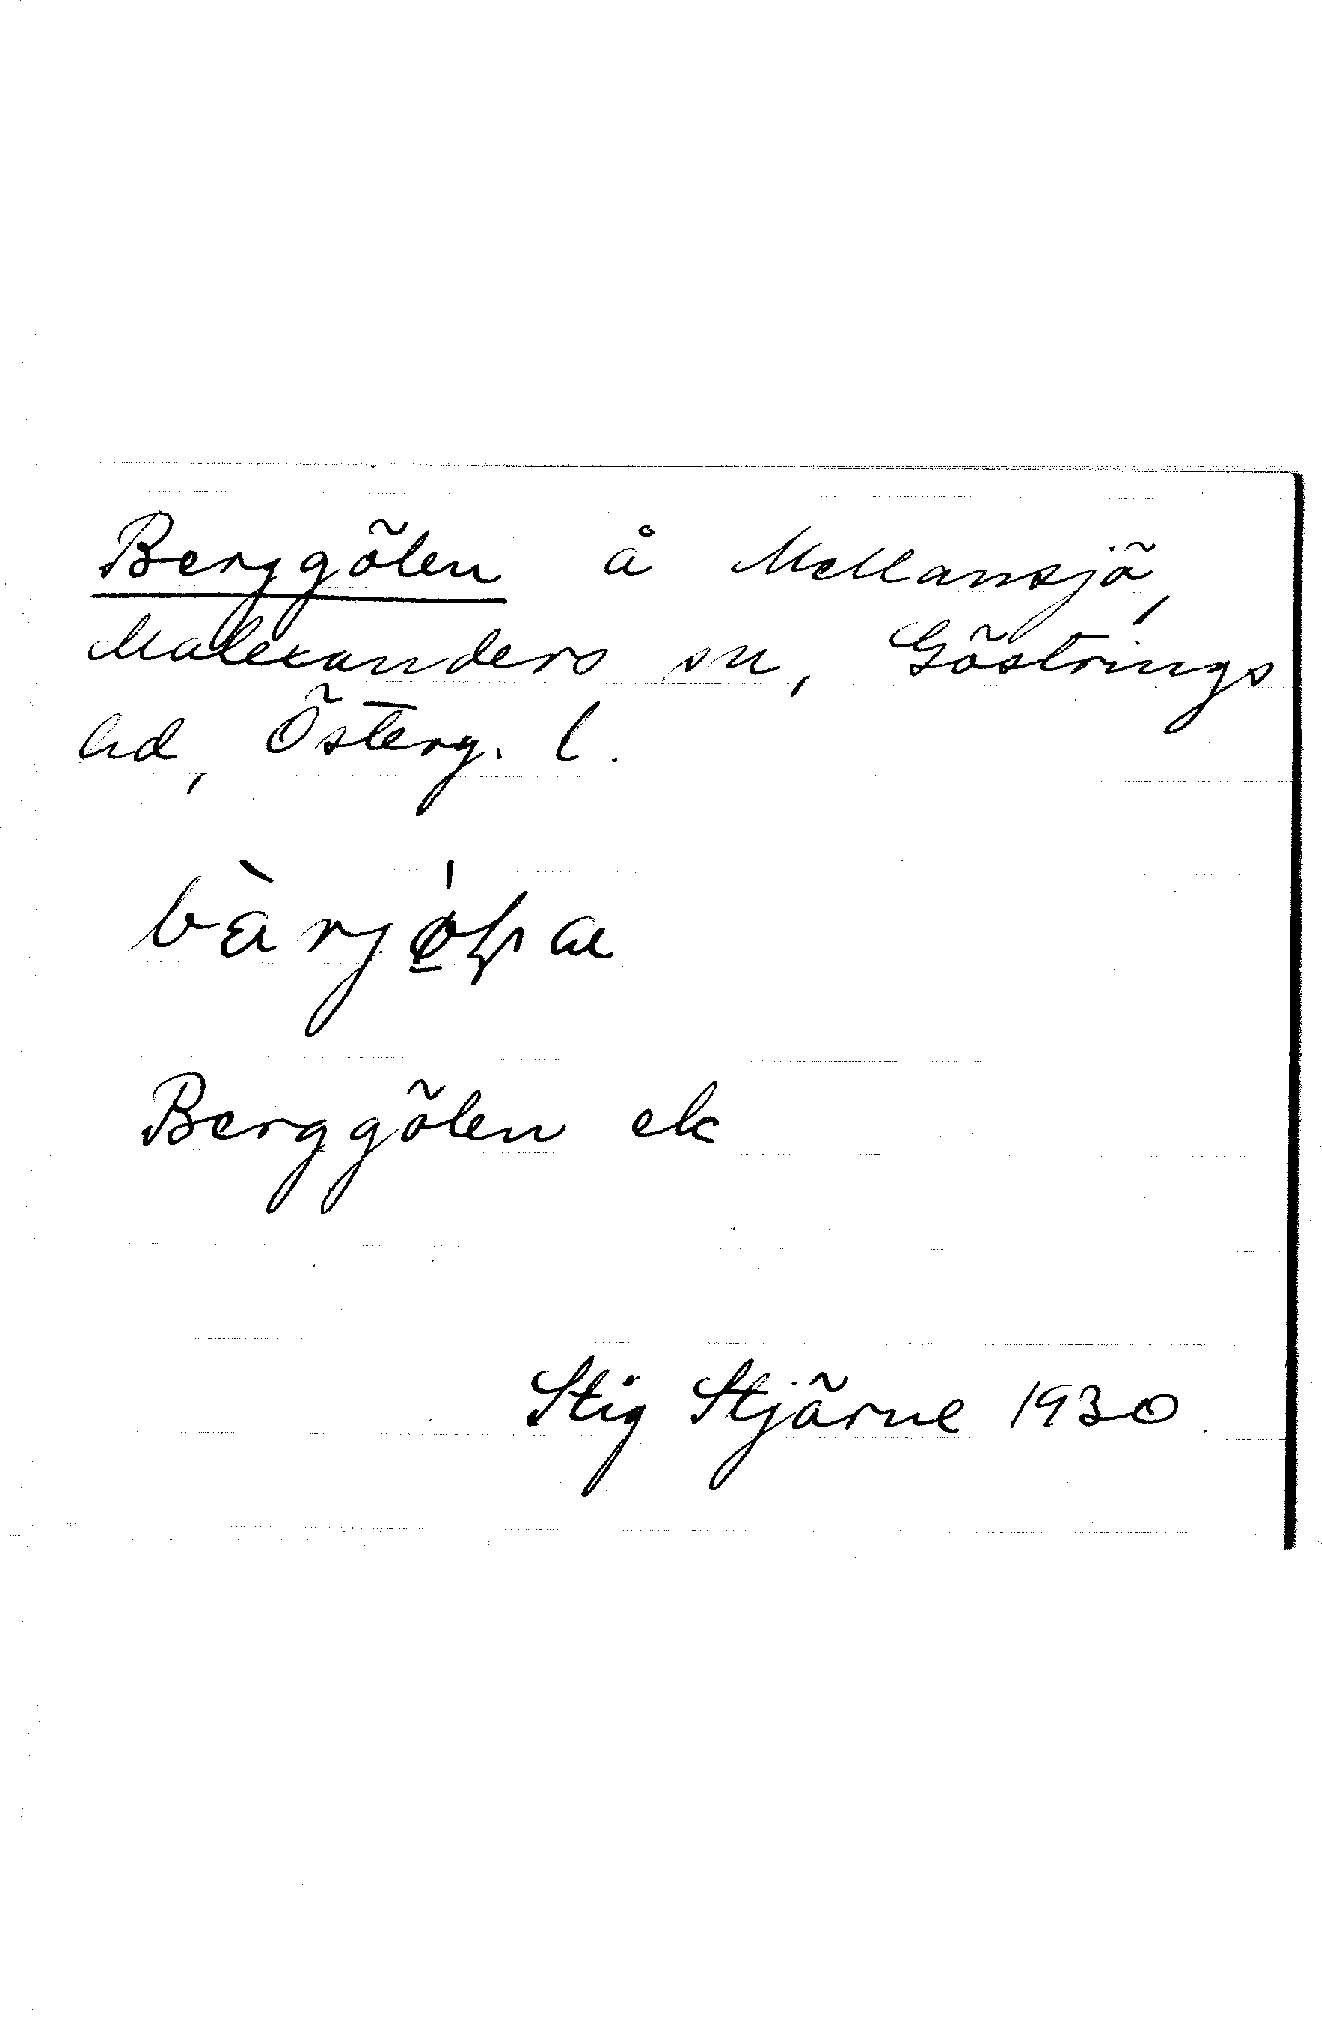 Berggölen å Mellansjö,
Malexanders sn, Göstrings
hd, Österg. l.
Berggölen ek
Stig Stjärne 1930